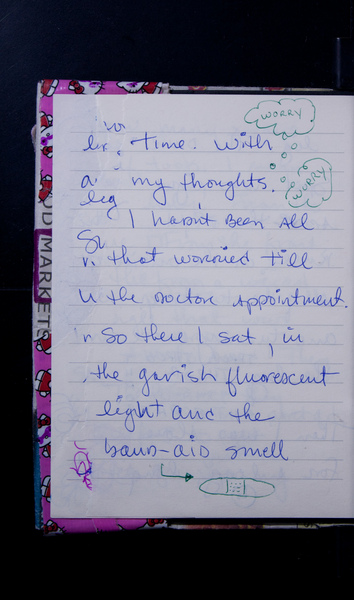 WORRY
time. With
my thoughts.
WORRY
I hasn't Been All
that worried till
the Doctor Appointment.
So there I sat, in
the garish fluorescent
light and the
band-aid smell
MARKET